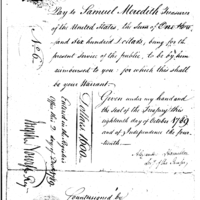 Pay to Samuel Meredith Treasurer
of the United States, the Sum of One thou
and six hundred Dollars, being for the
present service of the public, to be by him
accounted to you - for which this shall
be your Warrant.
Given under my hand and
the seal of the Treasury this
eighteenth day of October 1789
and of Independence the four
teenth.
Alexander Hamilton
Secy of the Treasy
No 6
Dollars 1600
Entered in the Register
Joseph Nourse Reg
Countersigned by